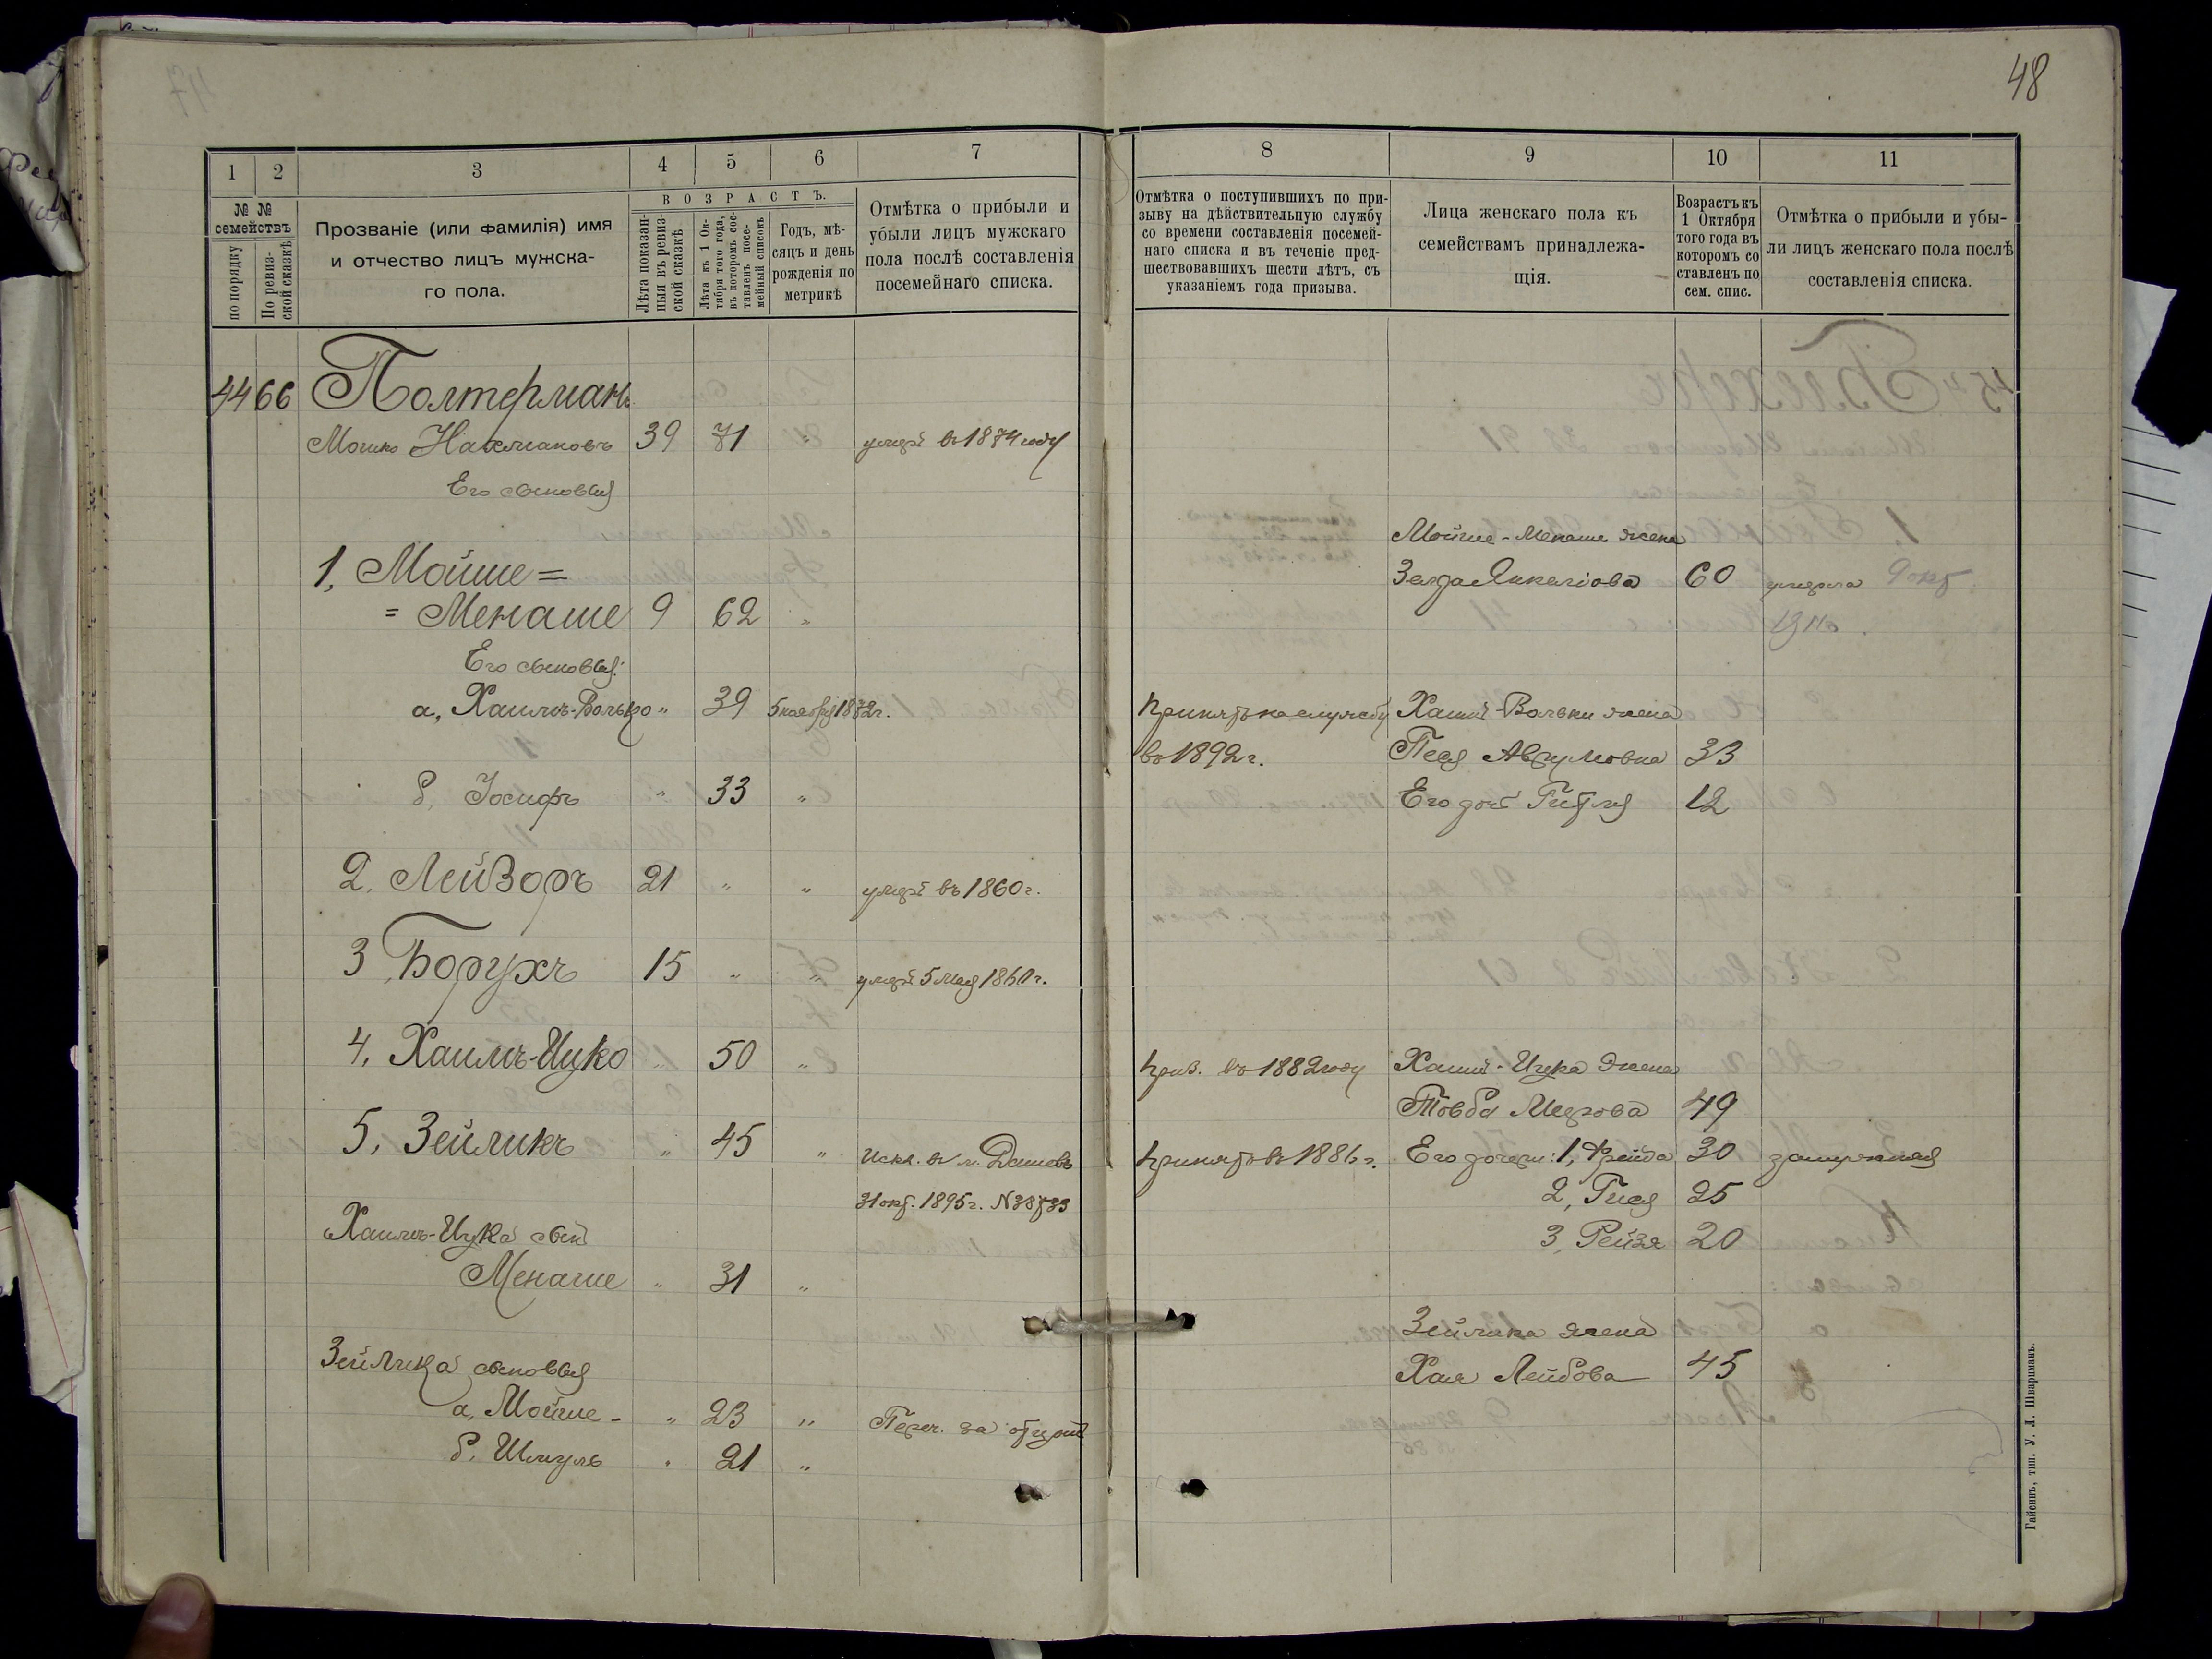 48
1
2
3
4
5
6
7
№ №
семействъ
по порядку
По ревиз-
ской сказкѣ
Прозваніе (или фамилія) имя
и отчество лицъ мужска-
го пола.
ВОЗРАСТЪ.
Лѣта показан-
ныя въ ревиз-
ской сказкѣ
Лѣта къ 1 Ок-
тября того года,
въ которомъ сос-
тавленъ посе-
мейный списокъ
Годъ, мѣ-
сяцъ и день
рожденія по
метрикѣ
Отмѣтка о прибыли и
убыли лицъ мужскаго
пола послѣ составленія
посемейнаго списка.
44 66 Полтерманъ
Мошко Нахмановъ 39 71 " умеръ въ 1874 году
Его сыновья
1, Мойше=
= Менаше 9 62 "
Его сыновья:
а, Хаимъ-Волько " 39 5 ноября 1872 г.
б, Іосифъ " 33 "
2. Лейзоръ 21 " " умеръ въ 1860 г.
3, Борухъ 15 " " умеръ 5 мая
4, Хаимъ-Ицко " 50 "
5, Зейликъ " 45 " Искл. въ м. Дашевъ
31 окт. 1895 г. №
Хаимъ-Ицка сынъ
Менаше " 31 "
Зейлика сыновья
а, Мойше - " 23 " Переч. за отцомъ
б. Шмуль " 21 "
8
9
10
11
Отмѣтка о поступившихъ по при-
зыву на дѣйствительную службу
со времени составленія посемей-
наго списка и въ теченіе пред-
шествовавшихъ шести лѣтъ, съ
указаніемъ года призыва.
Лица женскаго пола къ
семействамъ принадлежа-
щія.
Возрастъ къ
1 Октября
того года въ
которомъ со
ставленъ по
сем. спис.
Отмѣтка о прибыли и убы-
ли лицъ женскаго пола послѣ
составленія списка.
Мойше-Менаше жена
Зелда 60 умерла 9 окт.
Принятъ на службу Хаимъ-Вольки жена
въ 1892 г. Песя Аврумовна 33
Его дочь Гитля 12
Приз. въ 1882 году Хаимъ-Ицка жена
Товба 49
Принятъ въ 1886 г. Его дочери: 1, Фрейда 30 замужняя
2, Гися 25
3, Рейзя 20
Зейлика жена
Хая Лейбова 45
Гайсинъ, тип. У. Л. Шварцманъ.